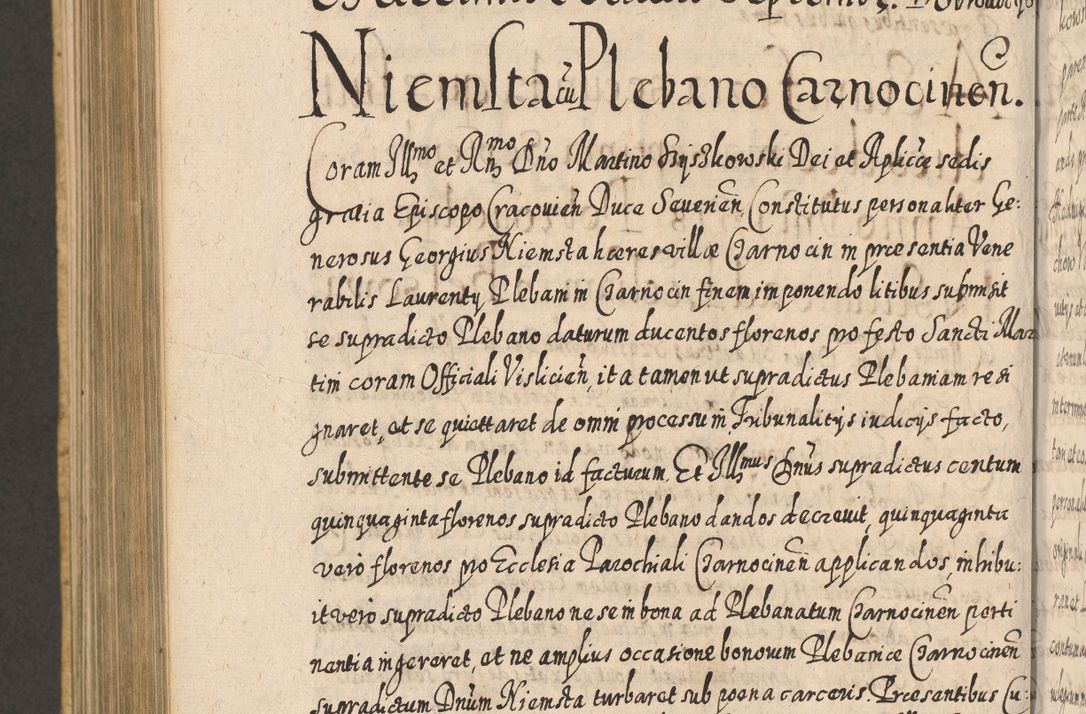 Niemsta cũ Plebano Czarnocinen̄.
Coram Illmo et Rnmo Dño Martino Szyszkowski Dei et Aplicæ sedis
gratia Episcopo Cracovien̄ Duce Severien̄, Constitutus personaliter Ge:
nerosus Georgius Niemsta hæres villæ Czarnocin in præsentia Vene
rabilis Laurenty, Plebani in Czarnocin finem imponendo litibus submisit
se supradicto Plebano daturum ducentos florenos pro festo Sancti Mar
tini coram Officiali Vislicien̄, ita tamen ut supradictus Plebaniam resi
gnaret, et se quiettaret de omni processu in Tribunalitijs iudicijs facto,
submittente se Plebano id facturum. Et Illmus Dñus supradictus centum
quinquaginta florenos supradicto Plebano dandos decrevit, quinquaginta
vero florenos pro Ecclesia Parochiali Czarnocinen̄ applicandos, inhibu:
it vero supradicto Plebano ne se in bona ad Plebanatum Czarnocinen̄ perti
nentia ingereret, et ne amplius occasione bonorum Plebaniæ Czarnocinen̄
supradictum Dnum Niemsta turbaret sub poena carceris. Præsentibus Cu: